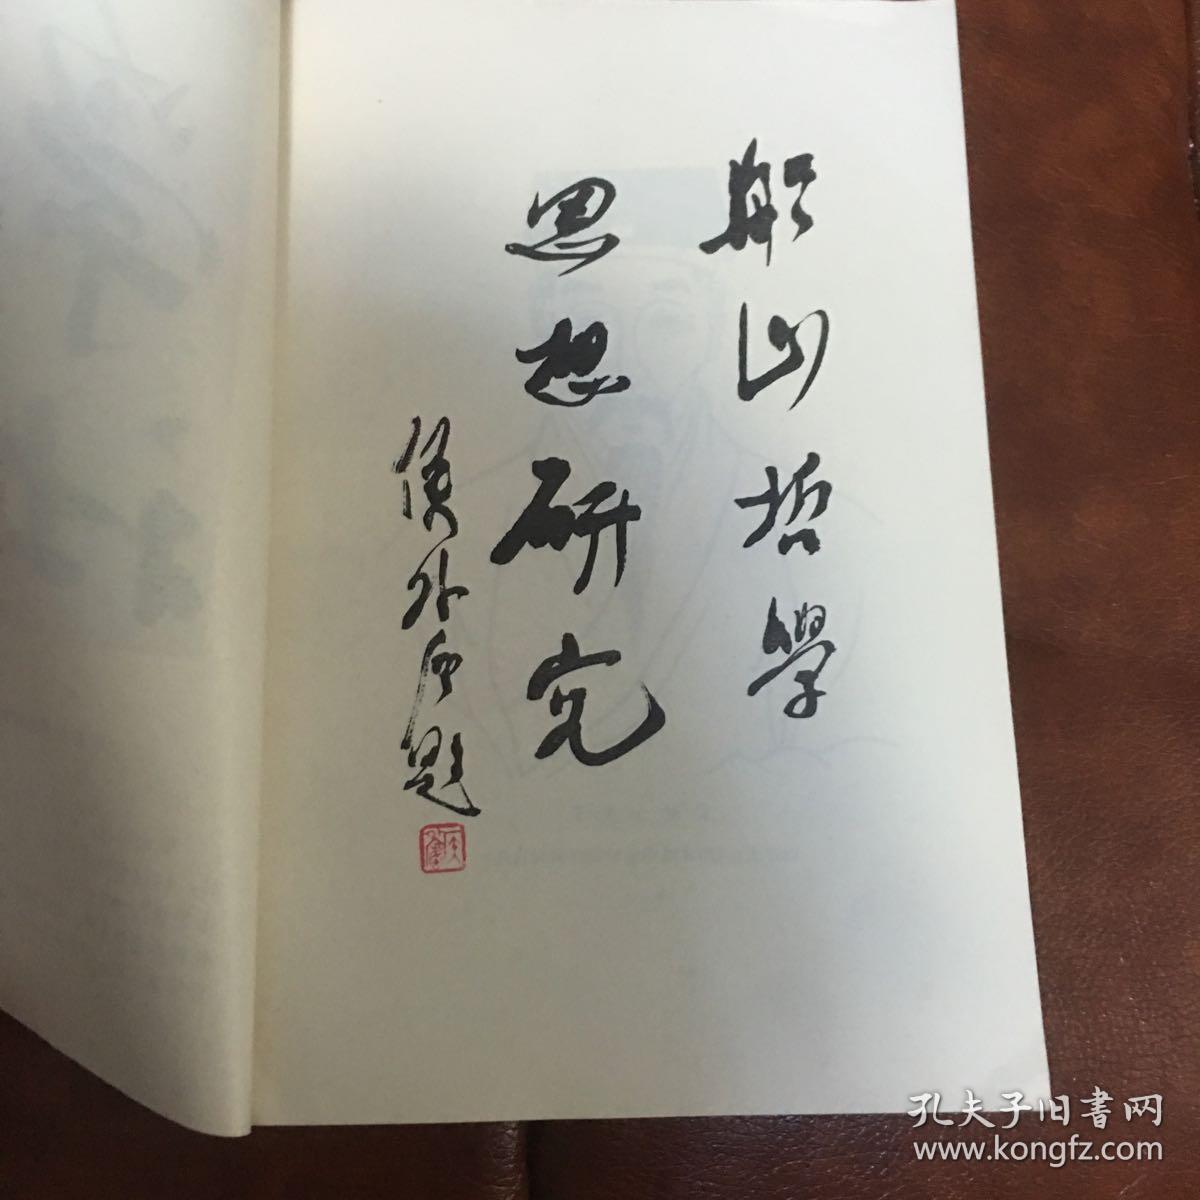 船山哲學
思想研究
侯外庐題
孔夫子旧書网
www.kongfz.com